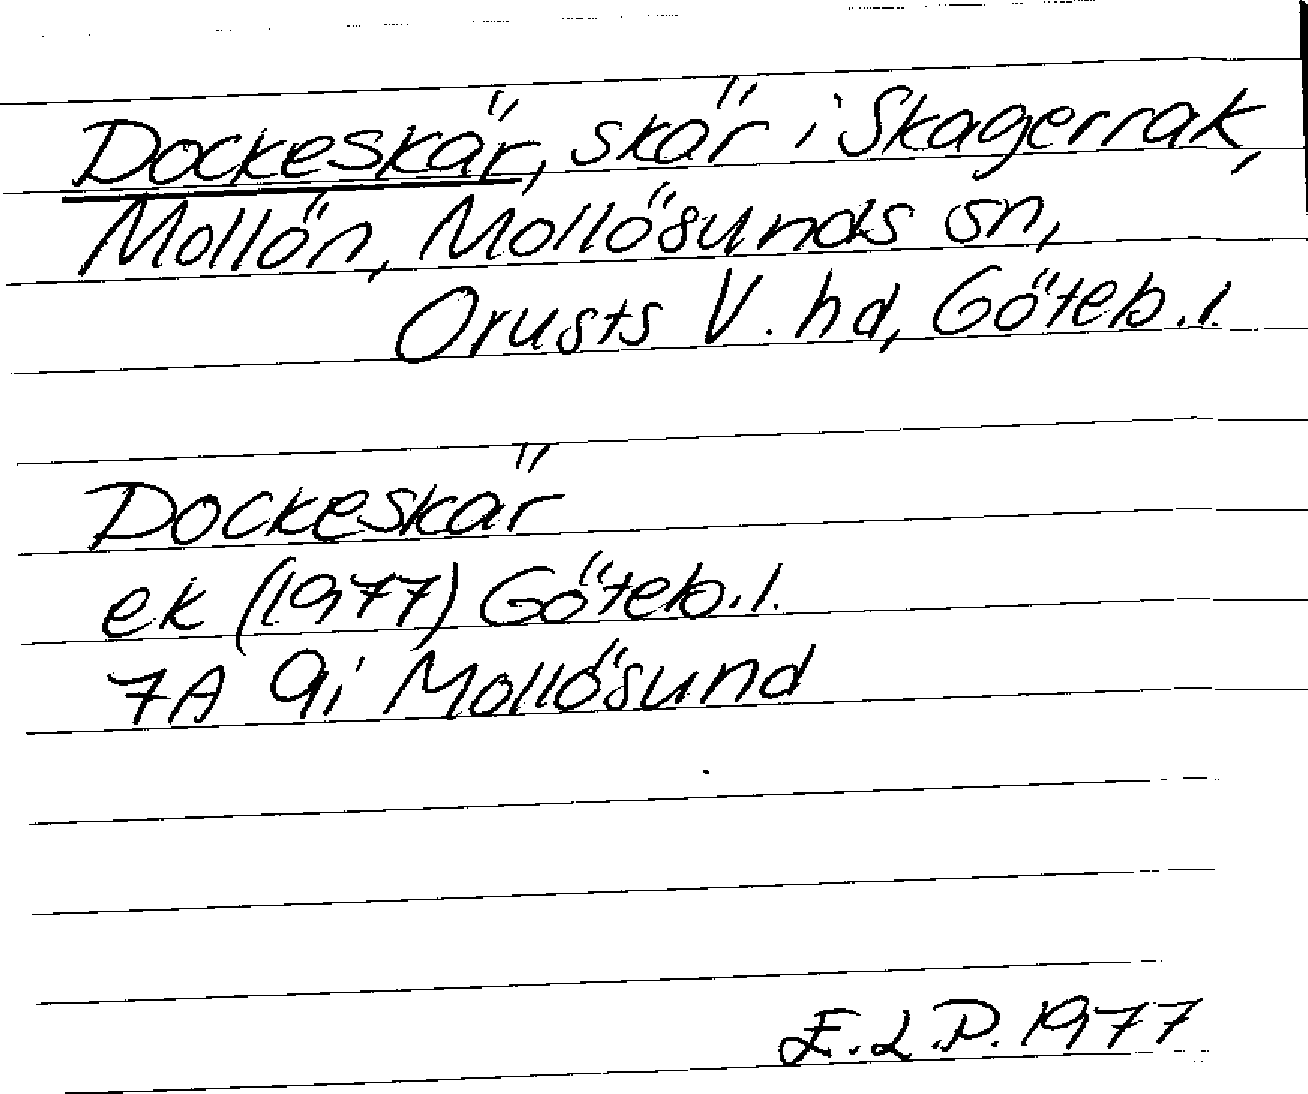 Dockeskär, skär i Skagerrak,
Mollön, Mollösunds sn,
Orusts V. hd, Göteb. l.
Dockeskär
ek (1977) Göteb. l.
7A 9i Mollösund
E.L.P. 1977